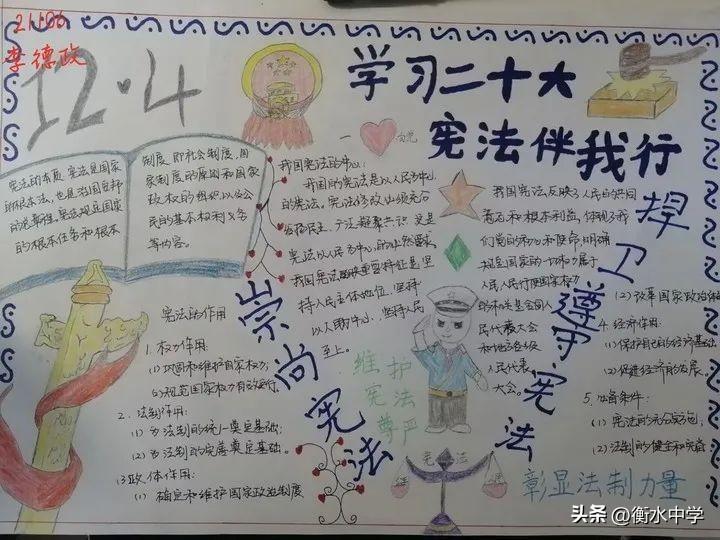 21106
李德政
12·4
学习二十大
宪法伴我行
宪法的本质 宪法是国家
的根本法,也是治国安邦
的总章程。宪法规定国家
的根本任务和根本
制度,即社会制度、国
家制度的原则和国家
政权的组织,以及公
民的基本权利义务
等内容。
我国宪法的中心:
我国的宪法是以人民为中心
的宪法。宪法修改必须充分
发扬民主,广泛凝聚共识,这是
宪法以人民为中心的必然要求
我国宪法的重要特征是坚
持人民主体地位,坚持
以人民为中心,坚持人民
至上。
我国宪法反映了人民的共同
意志和根本利益,体现了我
们党的初心和使命,明确
规定国家的一切权力属于
人民,人民行使国家权力
的机关是全国人
民代表大会
和地方各级
人民代表
大会。
捍卫遵守宪法
崇尚宪法
宪法的作用
1.权力作用:
(1)巩固和维护国家权力;
(2)规范国家权力有效运行。
2.法制作用:
(1)为法制的统一奠定基础;
(2)为法制的完善奠定基础。
(3)政体作用:
(1)确定和维护国家政治制度
(2)改革国家政治体
4.经济作用:
(1)保护自己的经济基础
(2)促进经济的发展。
5.必备条件:
(1)宪法的充分实施;
(2)法制的健全和完备
维护
宪法
尊严
宪 法
彰显法制力量
头条 @衡水中学